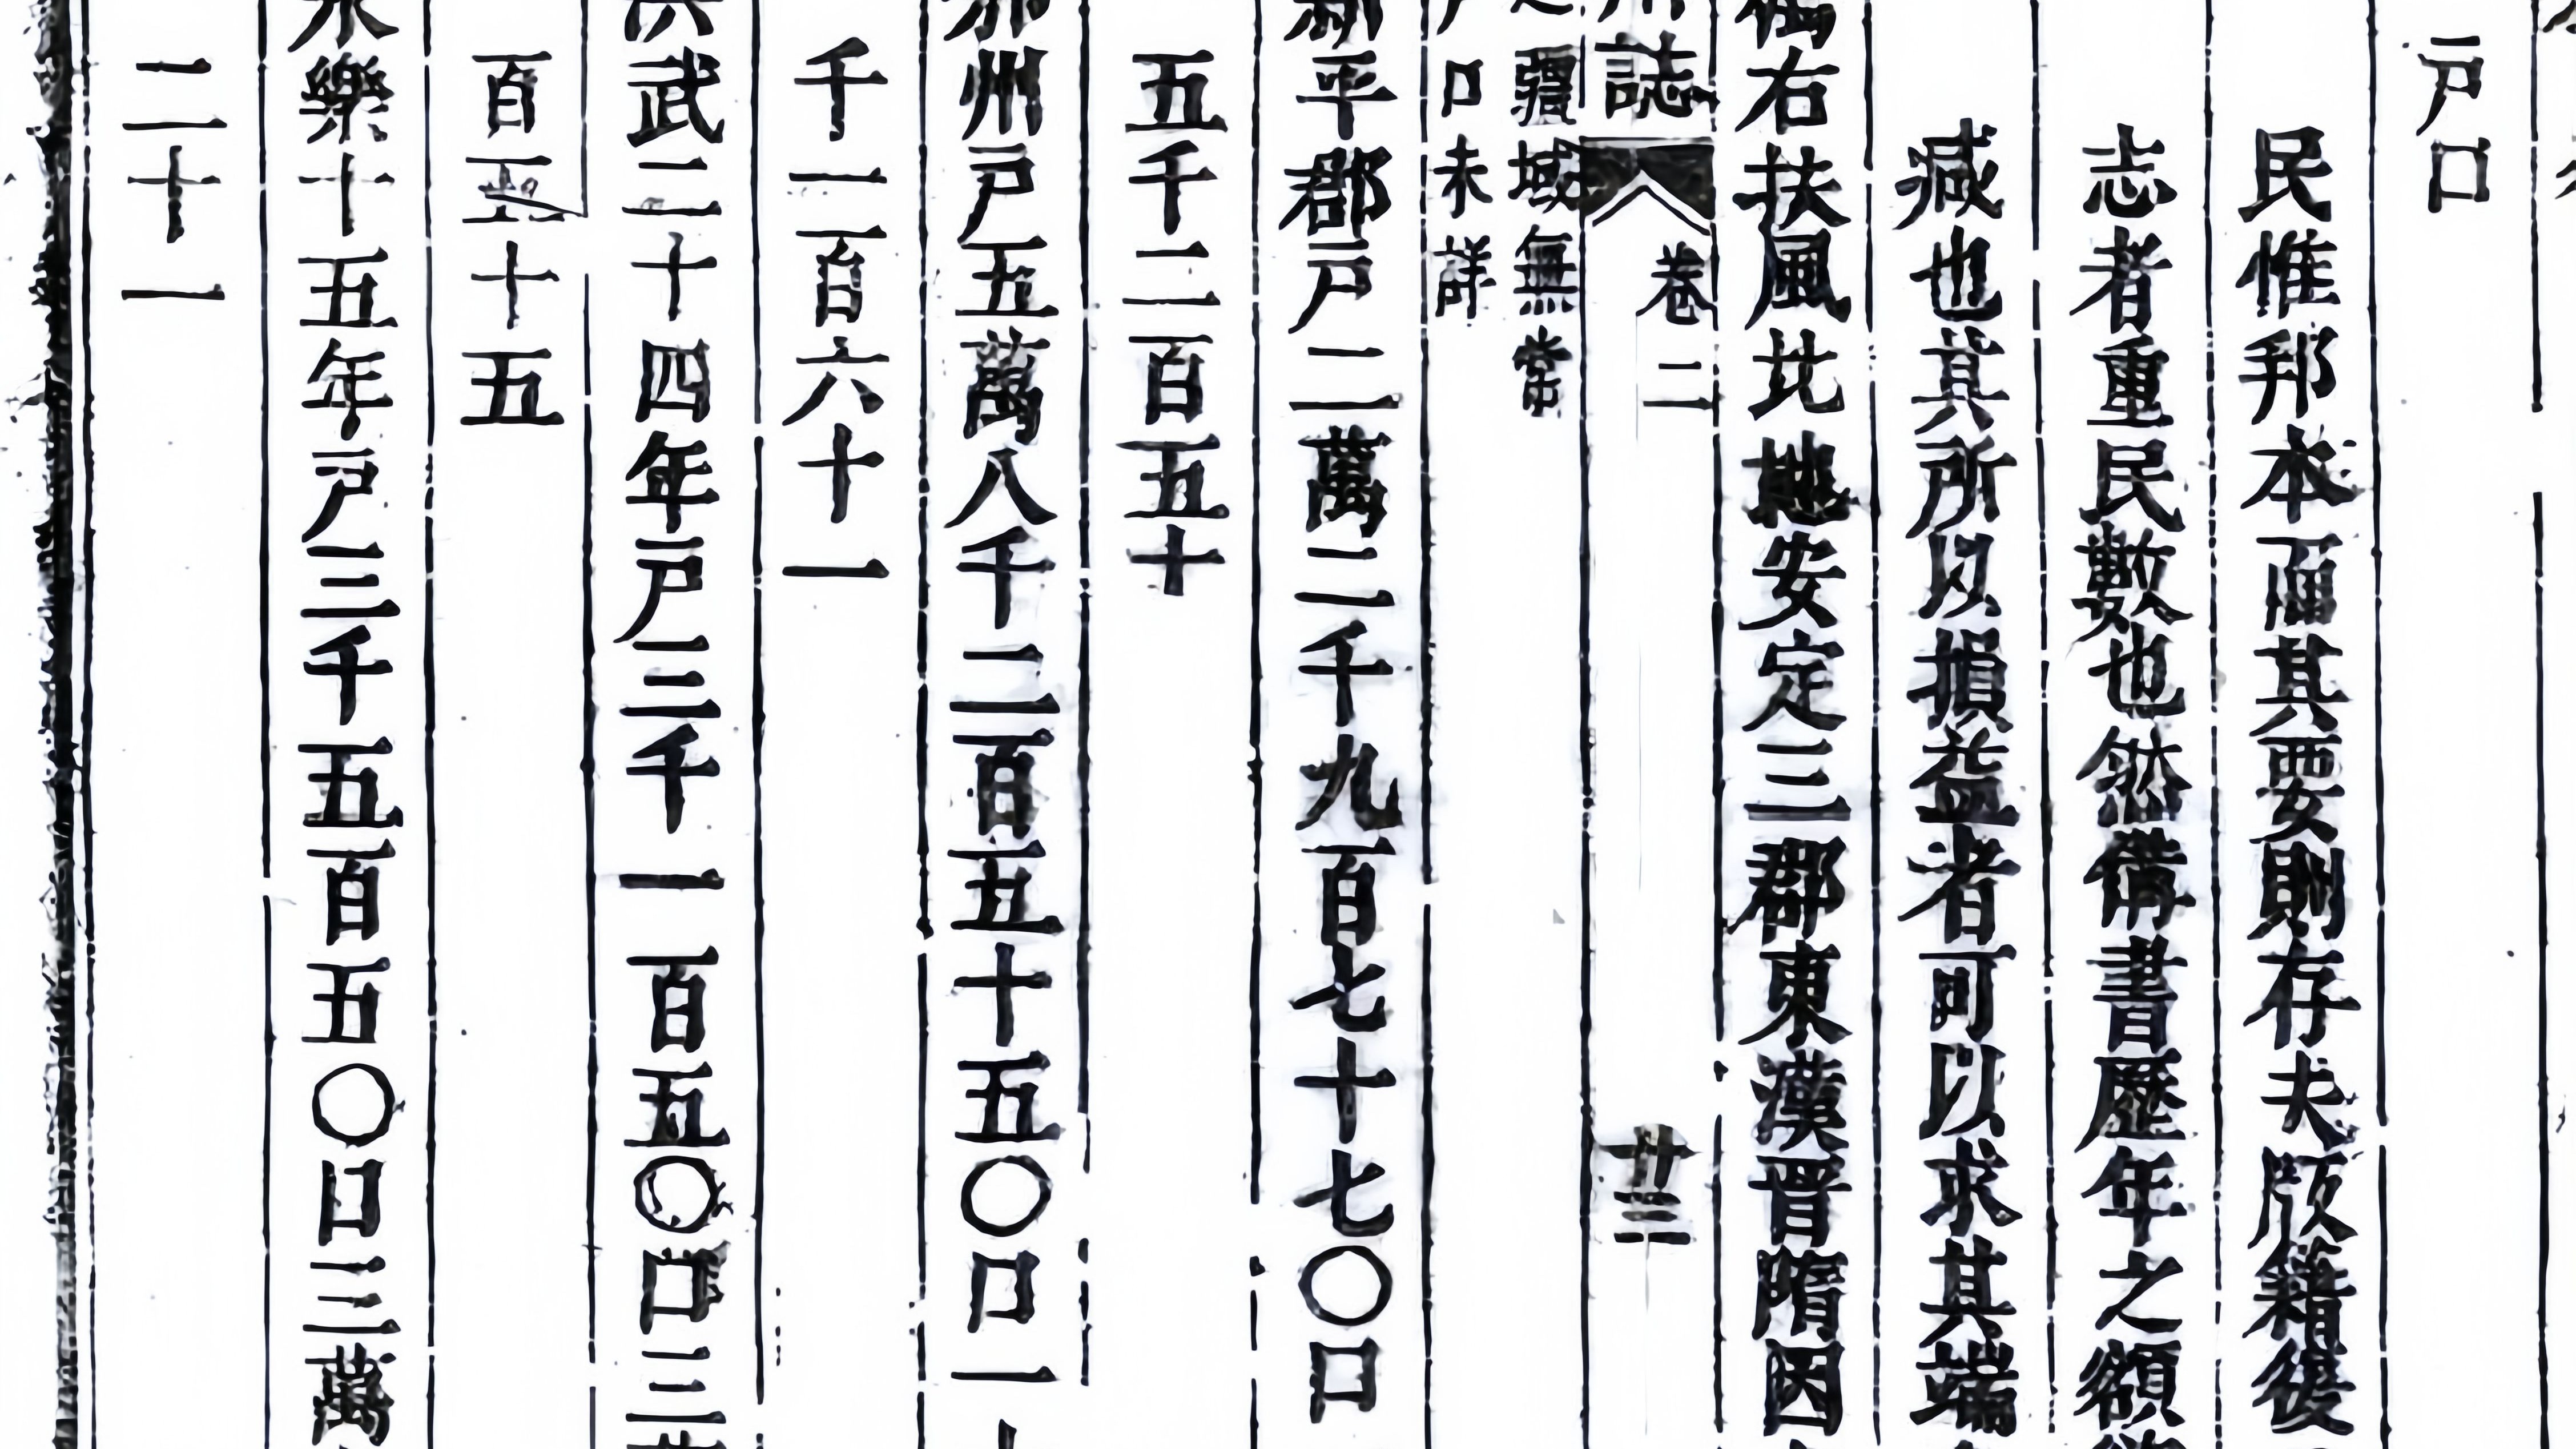 戸口
民惟邦本而其要則存夫版籍後
志者重民數也然備書歷年之額
减也其所以損益者可以求其端
右扶風北地安定三郡東漢晋隋因
誌 卷二 廿三
疆域無常
戸口未詳
新平郡戸二萬二千九百七十七〇口
五千二百五十
邠州戸五萬八千二百五十五〇口一
千一百六十一
洪武二十四年戸三千一百五〇口三萬
百五十五
永樂十五年戸三千五百五〇口三萬
二十一